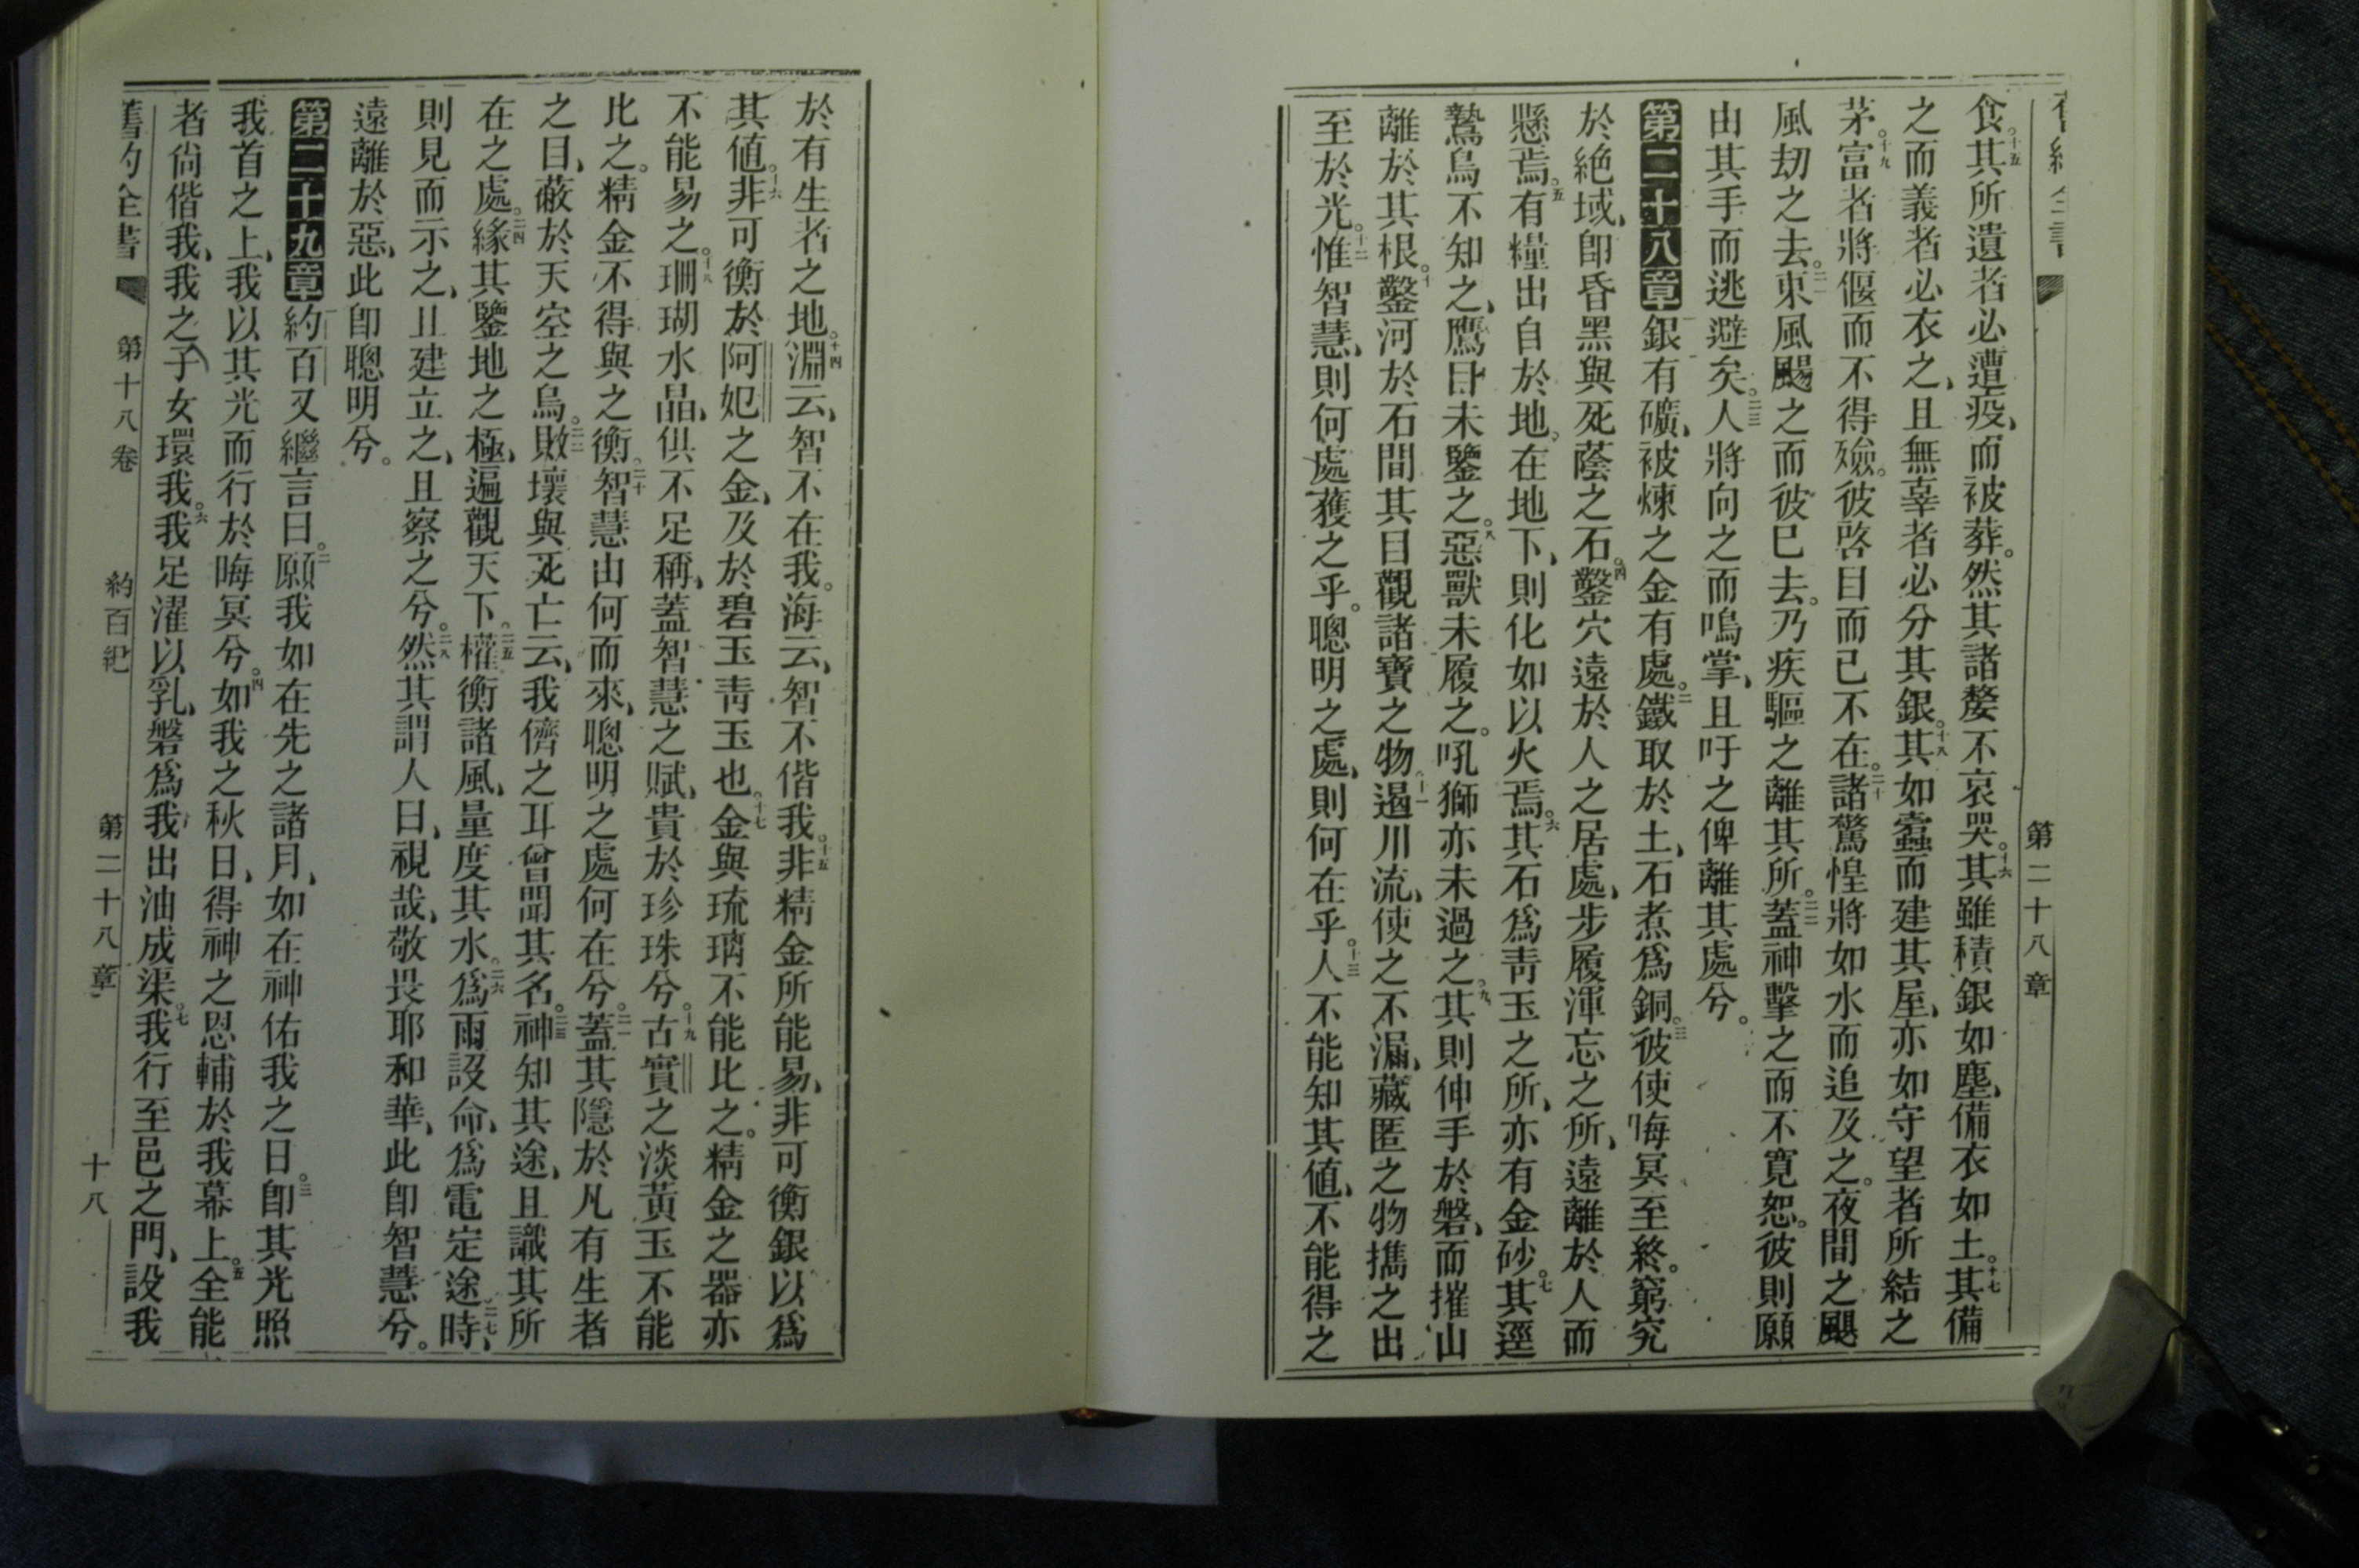 舊約全書 第二十八章
食。十五其所遺者必遭疫、而被葬。然其諸嫠不哀哭。十六其雖積銀如塵、備衣如土。十七其備
之而義者必衣之、且無辜者必分其銀。十八其如蠹而建其屋、亦如守望者所結之
茅。十九富者將偃而不得殮。彼啓目而已不在。二十諸驚惶將如水而追及之。夜間之颶
風刧之去。二一東風颺之而彼已去。乃疾驅之離其所。二二蓋神擊之而不寬恕。彼則願
由其手而逃避矣。二三人將向之而鳴掌、且吁之俾離其處兮。
第二十八章 銀有礦、被煉之金有處。二鐵取於土、石煮爲銅。三彼使晦冥至終。窮究
於絕域、卽昏黑與死蔭之石。四鑿穴遠於人之居處、步履渾忘之所、遠離於人而
懸焉。五有糧出自於地。在地下、則化如以火焉。六其石爲靑玉之所、亦有金砂。七其逕
鷙鳥不知之、鷹目未鑒之。八惡獸未履之。吼獅亦未過之。九其則伸手於磐、而摧山
離於其根。十鑿河於石間其目觀諸寶之物十一遏川流、使之不漏、藏匿之物攜之出
至於光。十二惟智慧、則何處獲之乎。聰明之處、則何在乎。十三人不能知其値、不能得之
於有生者之地。十四淵云、智不在我。海云、智不偕我。十五非精金所能易、非可衡銀以爲
其値。十六非可衡於阿妃之金、及於碧玉靑玉也。十七金與琉璃不能比之。精金之器亦
不能易之。十八珊瑚水晶、俱不足稱、蓋智慧之賦、貴於珍珠兮。十九古實之淡黃玉不能
比之。精金不得與之衡。二十智慧由何而來、聰明之處何在兮。二一蓋其隱於凡有生者
之目、蔽於天空之鳥。二二敗壞與死亡云、我儕之耳曾聞其名。二三神知其途、且識其所
在之處。二四緣其鑒地之極、遍觀天下。二五權衡諸風、量度其水。二六爲雨設命、爲電定途二七時、
則見而示之、且建立之、且察之兮。二八然其謂人曰、視哉、敬畏耶和華、此卽智慧兮。
遠離於惡、此卽聰明兮。
第二十九章 約百又繼言曰。二願我如在先之諸月、如在神佑我之日。三卽其光照
我首之上、我以其光而行於晦冥兮。四如我之秋日、得神之恩輔於我幕上。五全能
者尙偕我、我之子女環我。六我足濯以乳、磐爲我出油成渠。七我行至邑之門、設我
舊約全書 第十八卷 約百紀 第二十八章 十八